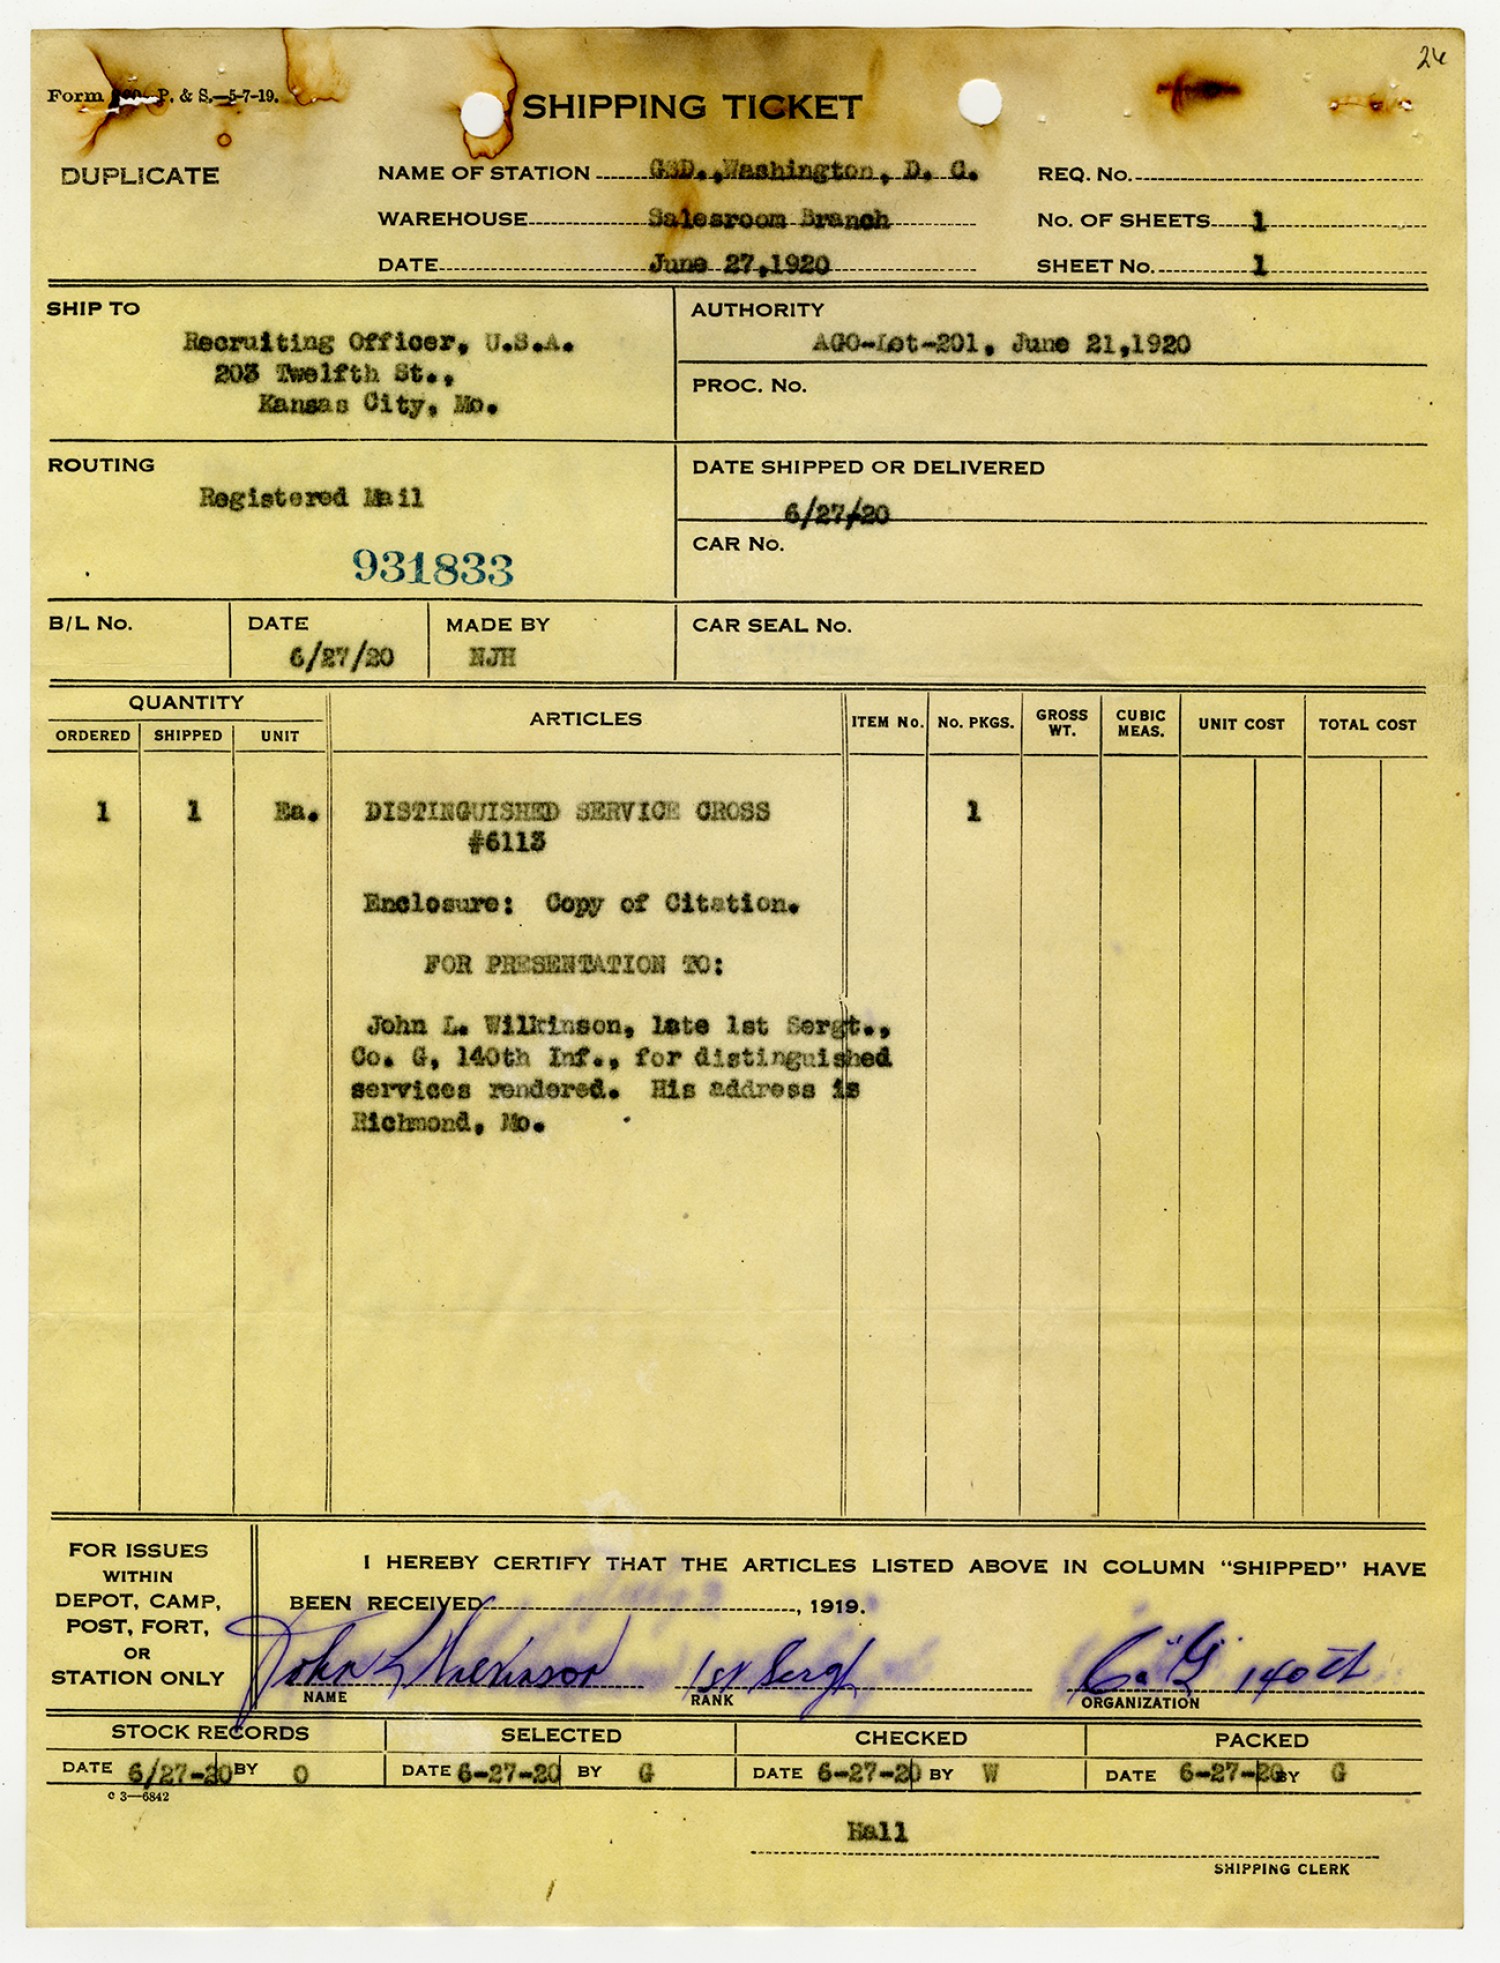 24
Form P. & S.—5-7-19.
SHIPPING TICKET
DUPLICATE
NAME OF STATION GSD., Washington, D. C.
REQ. No.
WAREHOUSE Salesroom Branch
No. OF SHEETS 1
DATE June 27,1920
SHEET No. 1
SHIP TO
Recruiting Officer, U.S.A.
203 Twelfth St.,
Kansas City, Mo.
AUTHORITY
AGO-Let-201, June 21,1920
PROC. No.
ROUTING
Registered Mail
931833
DATE SHIPPED OR DELIVERED
6/27/20
CAR No.
B/L No.
DATE
6/27/20
MADE BY
NJH
CAR SEAL No.
QUANTITY
ORDERED SHIPPED UNIT
ARTICLES
ITEM No. No. PKGS. GROSS WT. CUBIC MEAS. UNIT COST TOTAL COST
1 1 Ea. DISTINGUISHED SERVICE CROSS 1
#6113
Enclosure: Copy of Citation.
FOR PRESENTATION TO:
John L. Wilkinson, late 1st Sergt.,
Co. G, 140th Inf., for distinguished
services rendered. His address is
Richmond, Mo.
FOR ISSUES
WITHIN
DEPOT, CAMP,
POST, FORT,
OR
STATION ONLY
I HEREBY CERTIFY THAT THE ARTICLES LISTED ABOVE IN COLUMN “SHIPPED” HAVE
BEEN RECEIVED , 1919.
John L Wilkinson 1st Sergt Co "G" 140th
NAME RANK ORGANIZATION
STOCK RECORDS SELECTED CHECKED PACKED
DATE 6/27-20 BY O DATE 6-27-20 BY G DATE 6-27-20 BY W DATE 6-27-20 BY G
c 3—6842
Hall
SHIPPING CLERK